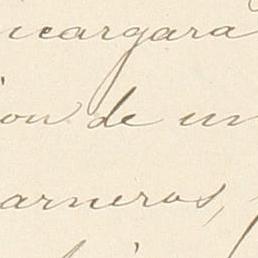 ncargara
ion de un
arneros,